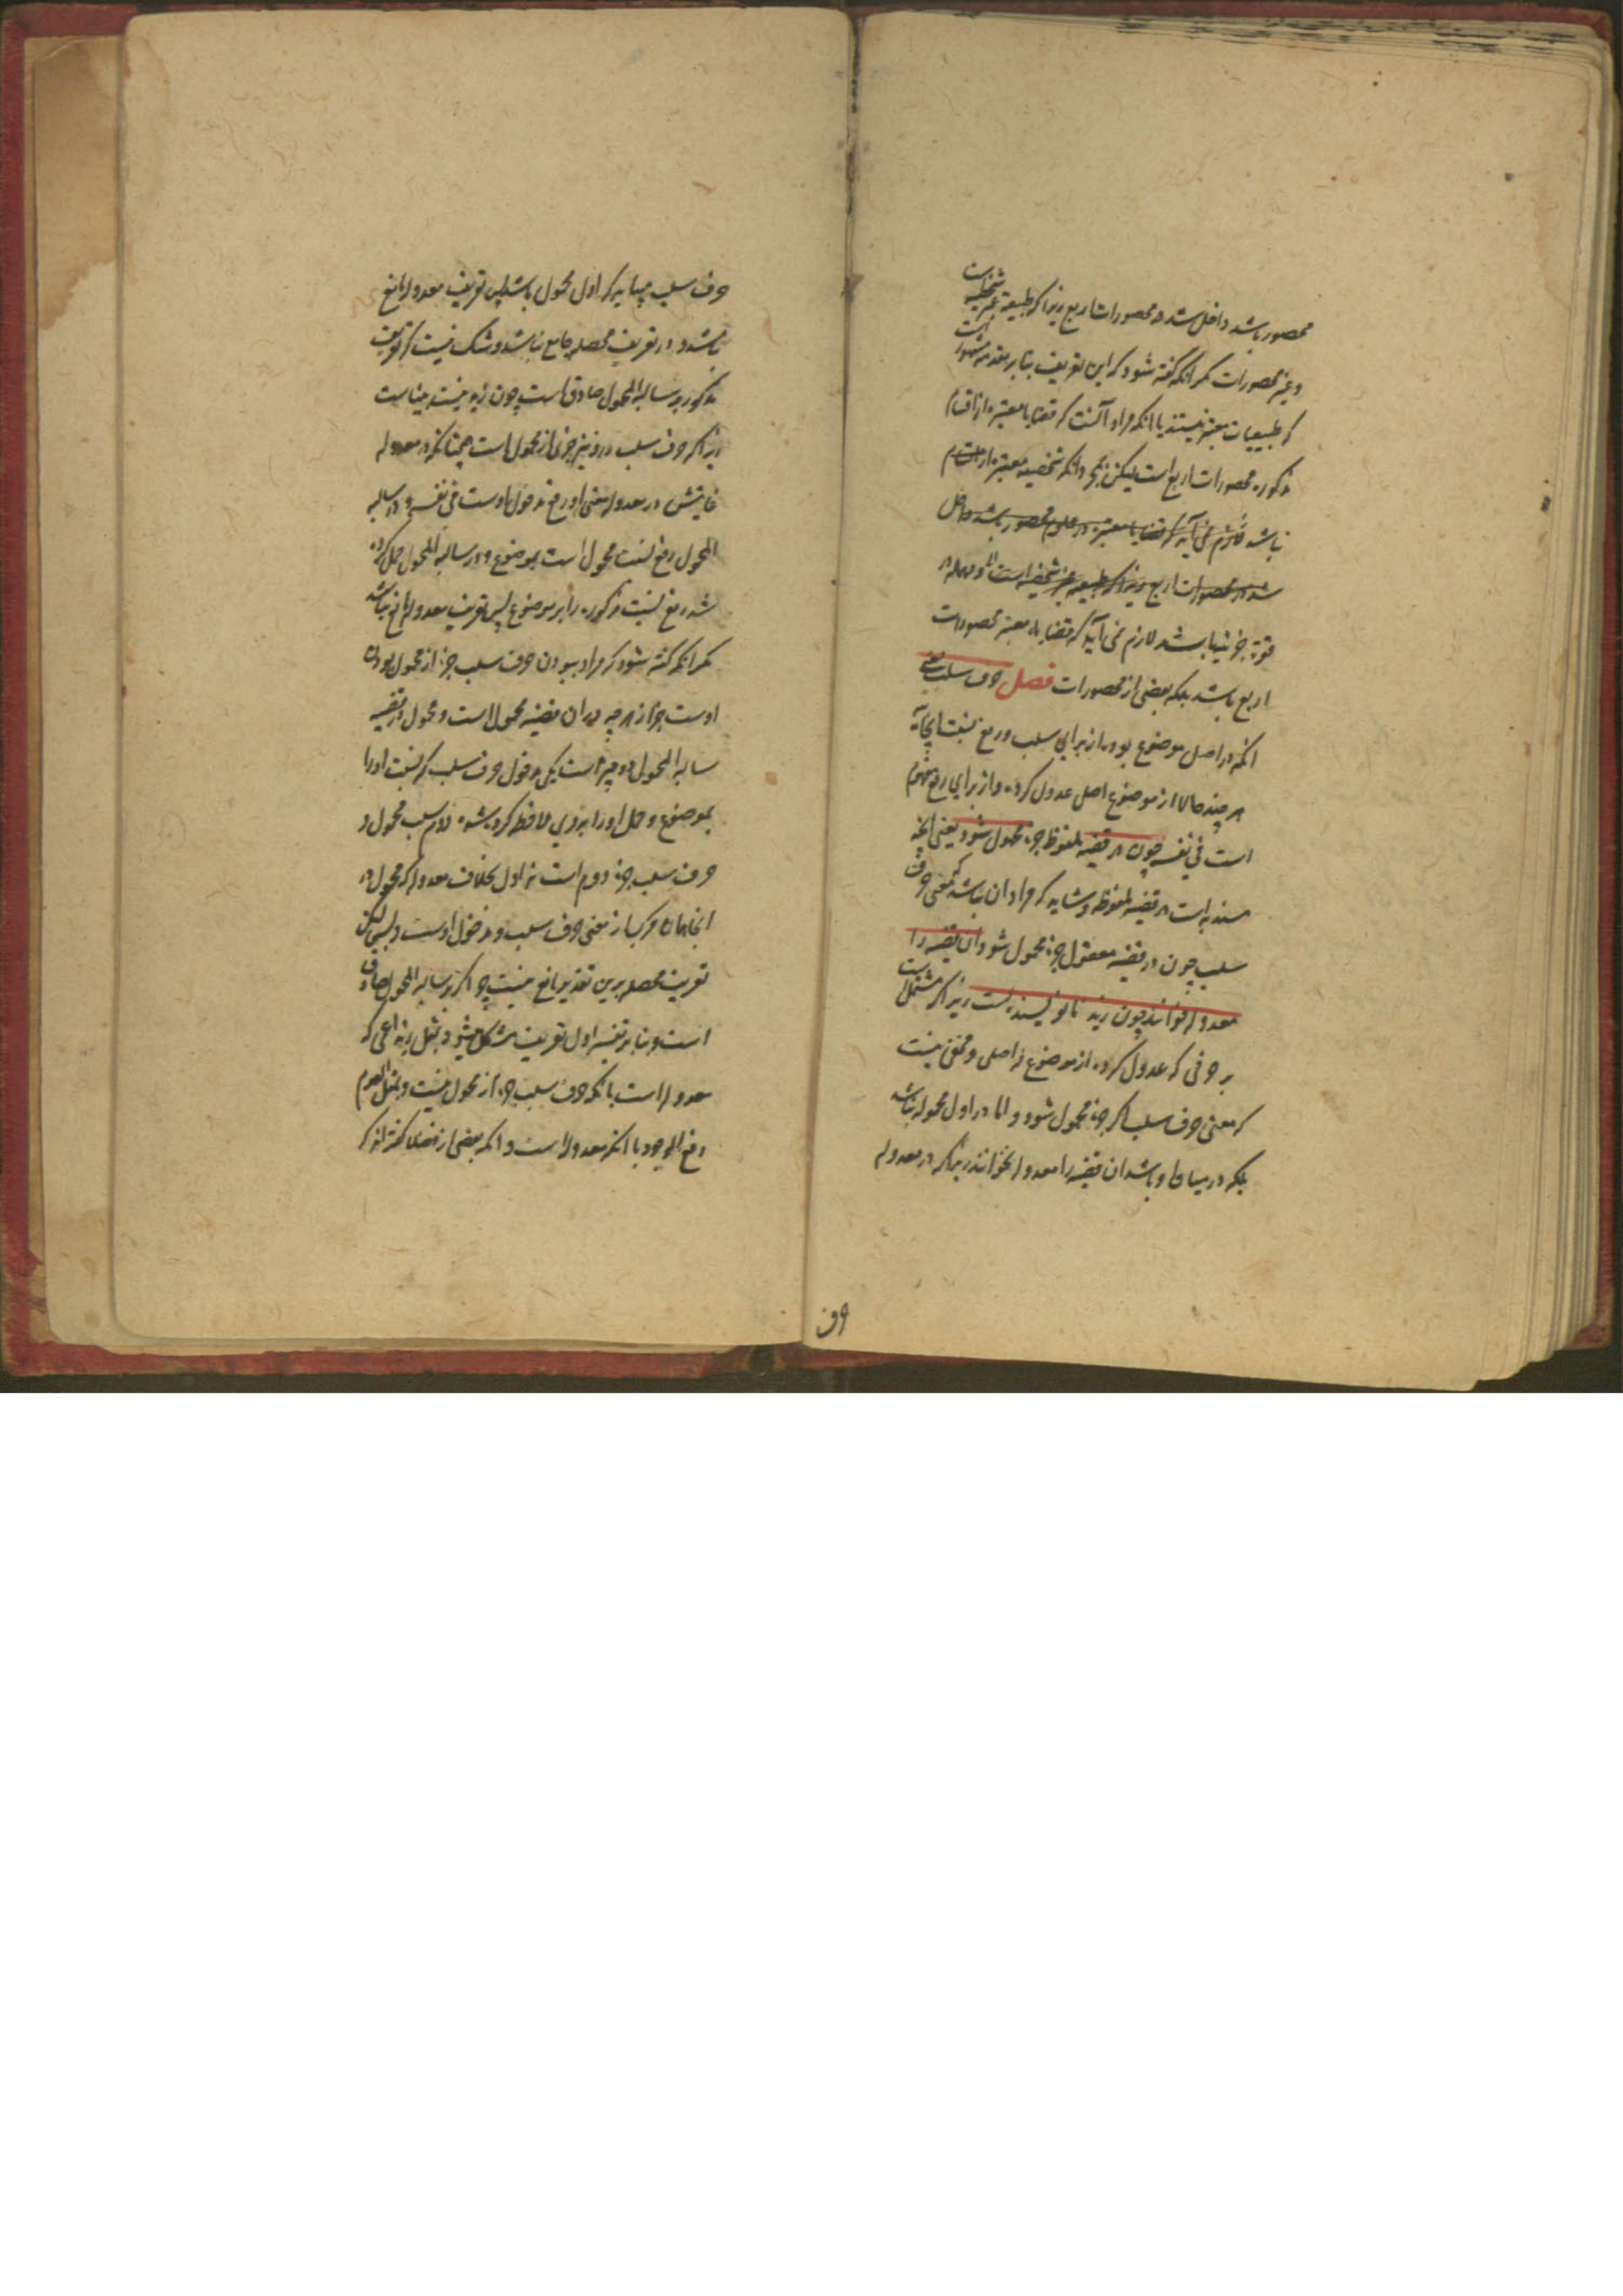 محصور باشد داخل شد در محصورات اربع زیرا که طبیعیه غیر شخصیه است
و غیر محصورات مگر آنکه گفته شود که این تعریف بنا بر مقدمه مشهور است
که طبیعیات معتبر نیستند یا آنکه مراد آنست که قضایا معتبره از اقسام
مذکوره محصورات اربع است لیکن بمجرد آنکه شخصیه معتبره از اقسام
نباشد لازم نمی آید که قضایا معتبره در علوم محصور باشد داخل
شد در محصورات اربع زیرا که طبیعیه غیر شخصیه است و مهمله در
قوة جزئیه باشد لازم نمی آید که قضایاء معتبر محصورات
اربع باشد بلکه بعضی از محصورات فصل حرف سلب یعنی
آنکه در اصل موضوع بود از برای سلب و رفع نسبت ایجابیه
هر چند حالا از موضوع اصل عدول کرده و از برای رفع مفهوم
است فی نفسه چون در قضیه ملفوظ جزء محمول شود یعنی آنچه
مسند به است در قضیه ملفوظه و شاید که مراد آن باشد که معنی حرف
سلب چون در قضیه معقول جزء محمول شود آن قضیه را
معدوله خوانند چون زید نانویسنده است زیرا که مشتمل است
بر حرفی که عدول کرده از موضوع له اصلی و مخفی نیست
که معنی حرف سلب اگر جزء محمول شود و اما در اول محموله نباشد
بلکه در میان او باشد آن قضیه را معدوله نخوانند زیرا که در معدوله
حرف
حرف سلب میباید که اول محمول باشد پس تعریف معدوله مانع
نباشد و در تعریف محصله جامع نباشد و شک نیست که تعریف
مذکور بر سالبة المحمول صادق است چون زید نیست بیناست
زیرا که حرف سلب درو نیز جزئی از محمول است چنانکه در معدوله
غایتش در معدوله معنی او رفع مدخول اوست فی نفسه و در سالبه
المحمول رفع نسبت محمول است بموضوع و در سالبة المحمول حمل کرده
شد رفع نسبت مذکوره را بر موضوع پس تعریف معدوله مانع نباشد
مگر آنکه گفته شود که مراد ببودن حرف سلب جزء از محمول بودن
اوست جزء از هر چه در آن قضیه محمول است و محمول در قضیه
سالبة المحمول دو چیز است یکی مدخول حرف سلب که نسبت او را
بموضوع و حمل او را بروی ملاحظه کرده شده دوم سلب محمول و
حرف سلب جزء دوم است نه اول بخلاف معدوله که محمول در
اینجا همان مرکب از معنی حرف سلب و مدخول اوست و بس لیکن
تعریف محصله برین تقدیر مانع نیست چرا که بر سالبة المحمول صادق
است و بنا بر تفسیر اول تعریف مشکل میشود بمثل زید اعمی که
معدوله است با آنکه حرف سلب جزء از محمول نیست و بمثل العدم
رفع الوجود با آنکه معدوله است و آنکه بعضی از فضلا گفته اند که